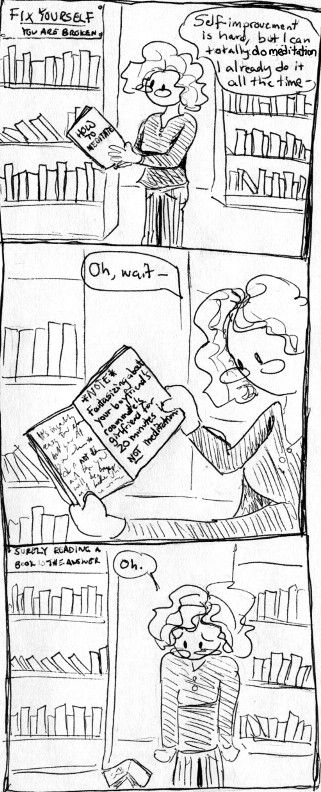 FIX YOURSELF
YOU ARE BROKEN
Self-improvement
is hard, but I can
totally do meditation
I already do it
all the time-
HOW
TO
MEDITATE
Oh, wait-
*NOTE*
Fantasizing about
your boyfriend's
roommate's
girlfriend for
20 minutes is
NOT meditation
SURELY READING A
BOOK IS THE ANSWER
Oh.